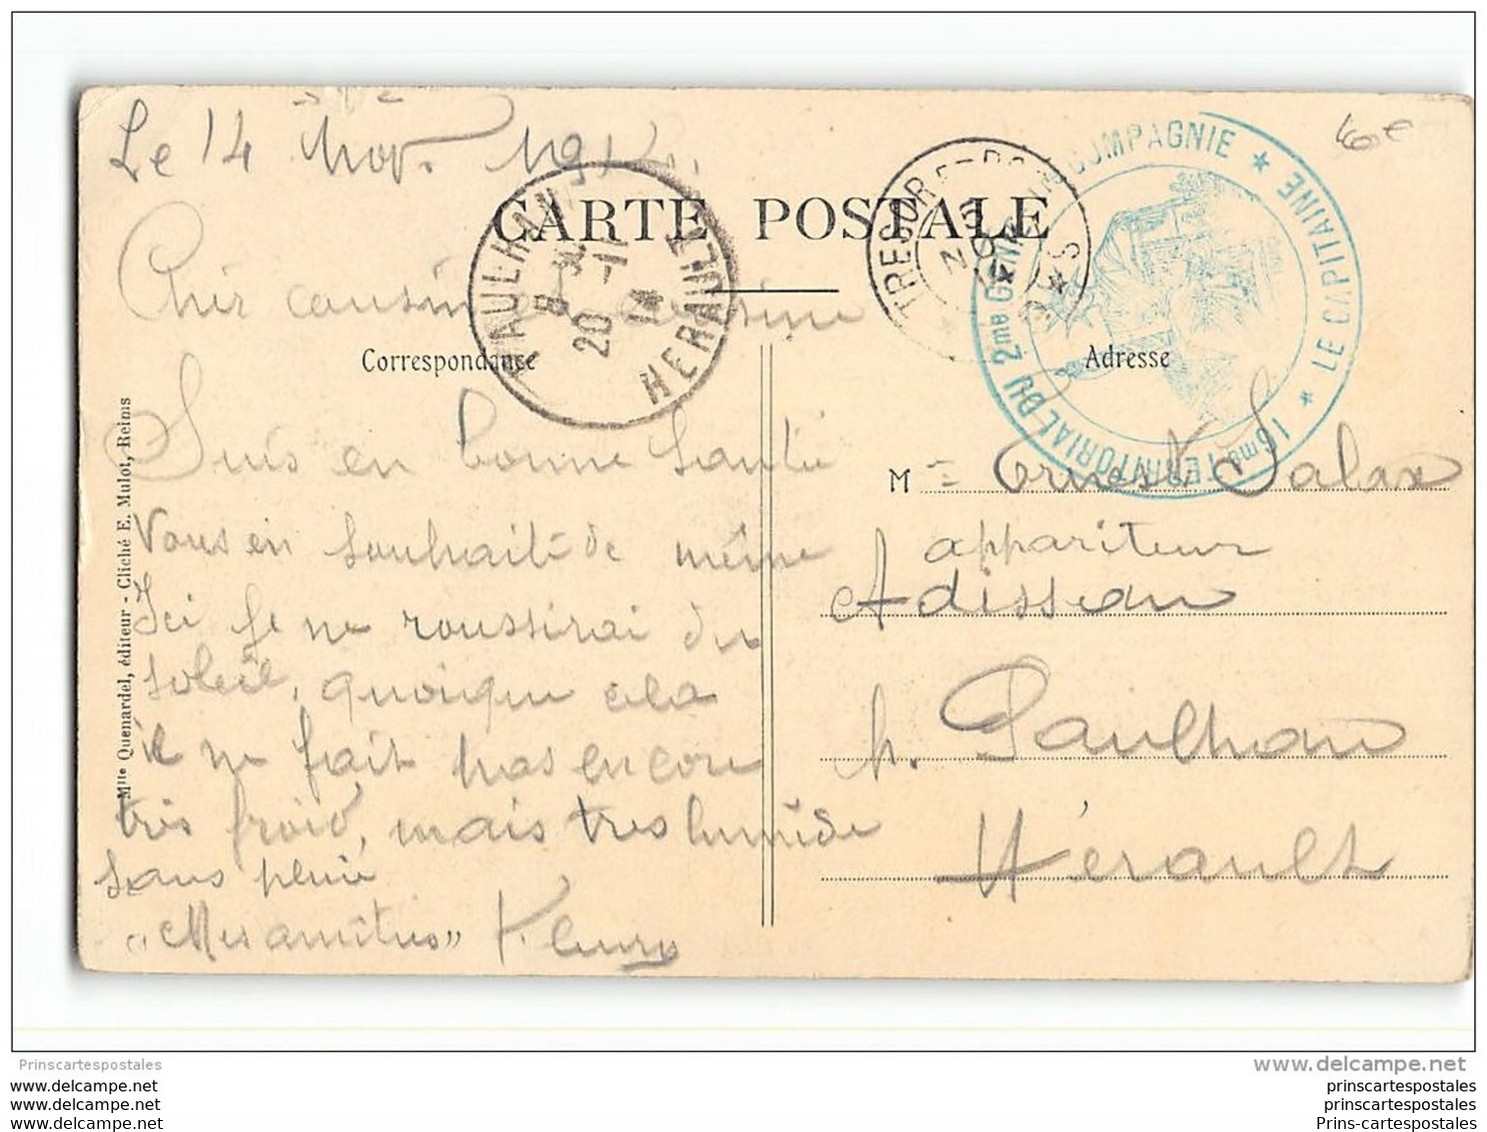 Le 14 Nov. 191
CARTE POSTALE
Cher cousin et cousine
Correspondance
Suis en bonne Santé
Vous en souhaite de même
Ici je ne roussirai du
soleil, quoique cela
il ne fait pas encore
très froid, mais très humide
sans pluie
"Mes amitiés" Fleury
Mlle Quenardel, éditeur - Cliché E. Mulot, Reims
PAULHAN
8
20 - 11
14
HERAULT
TRESOR ET POSTES
16me TERRITORIAL DU 2me GENIE COMPAGNIE ★ LE CAPITAINE ★
6€
Adresse
M Ernest Salax
appariteur
Adissan
h. Paulhan
Hérault
Prinscartespostales
delcampe.net
delcampe.net
delcampe.net
delcampe.net
prinscartespostales
prinscartespostales
Prins-cartespostales